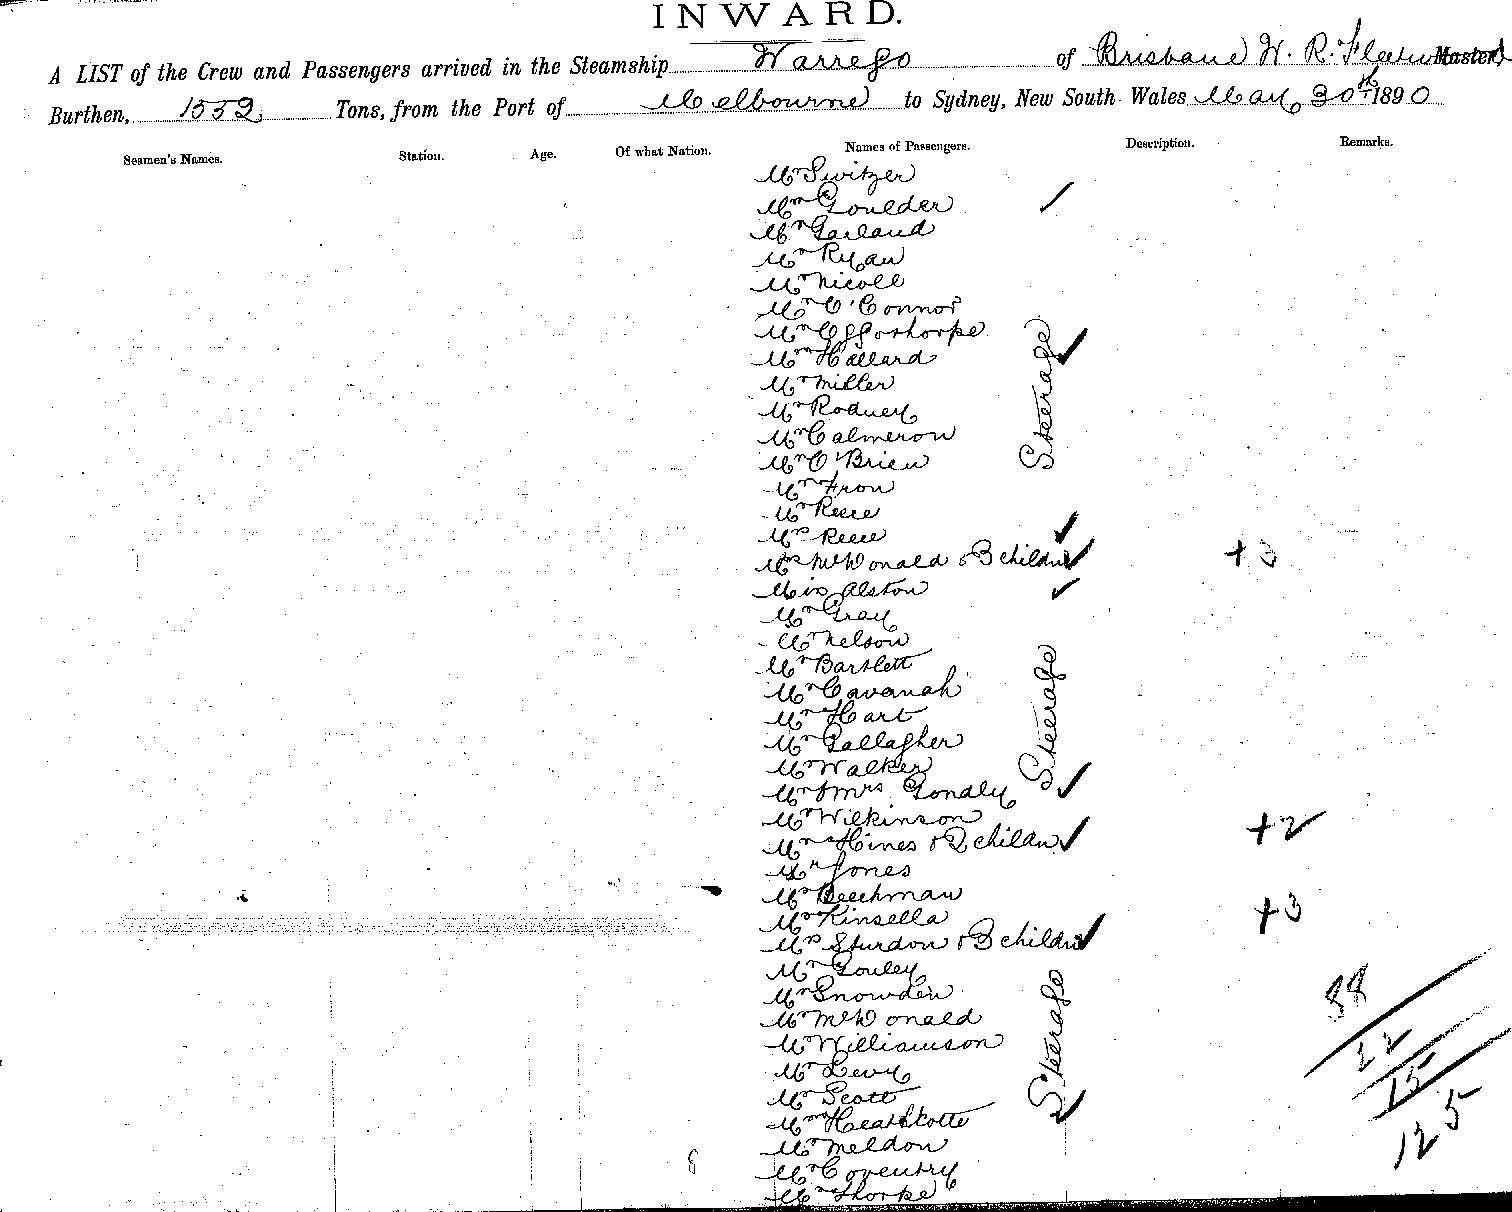 INWARD.
A LIST of the Crew and Passengers arrived in the Steamship Warrego of Brisbane W. R. Master
Burthen, 1552 Tons, from the Port of Melbourne to Sydney, New South Wales May 30th 1890
Seamen's Names. Station. Age. Of what Nation. Names of Passengers. Description. Remarks.
Mr Switzer
Mrs Goulder
Mr Garland
Mr Ryan
Mr Nicoll
Mr O'Connor
Mr
Mrs Hallard
Mr Miller
Mr Rodney
Mr Calmeron
Mr O'Brien
Mr Fron
Mr Reece
Mrs Reece
Mrs McDonald & 3 childrn +3
Miss Alston
Mr Gray
Mr Nelson
Mr Bartlett
Mr Cavanah
Mr Hart
Mr Gallagher
Mr Walker
Mr & Mrs Gondly
Mr Wilkinson
Mrs Hines & 2 childn +2
Mr Jones
Mr Beechman
Mr Kinsella +3
Mrs Sturdon & 3 childn
Mr Gouley
Mr Snowden
Mr McDonald
Mr Williamson
Mr Levy
Mr Scott
Mrs Heathkotte
Mr Meldon
Mr Coventry
Mr Thorpe
Steerage
Steerage
Steerage
88
22
15
125
8